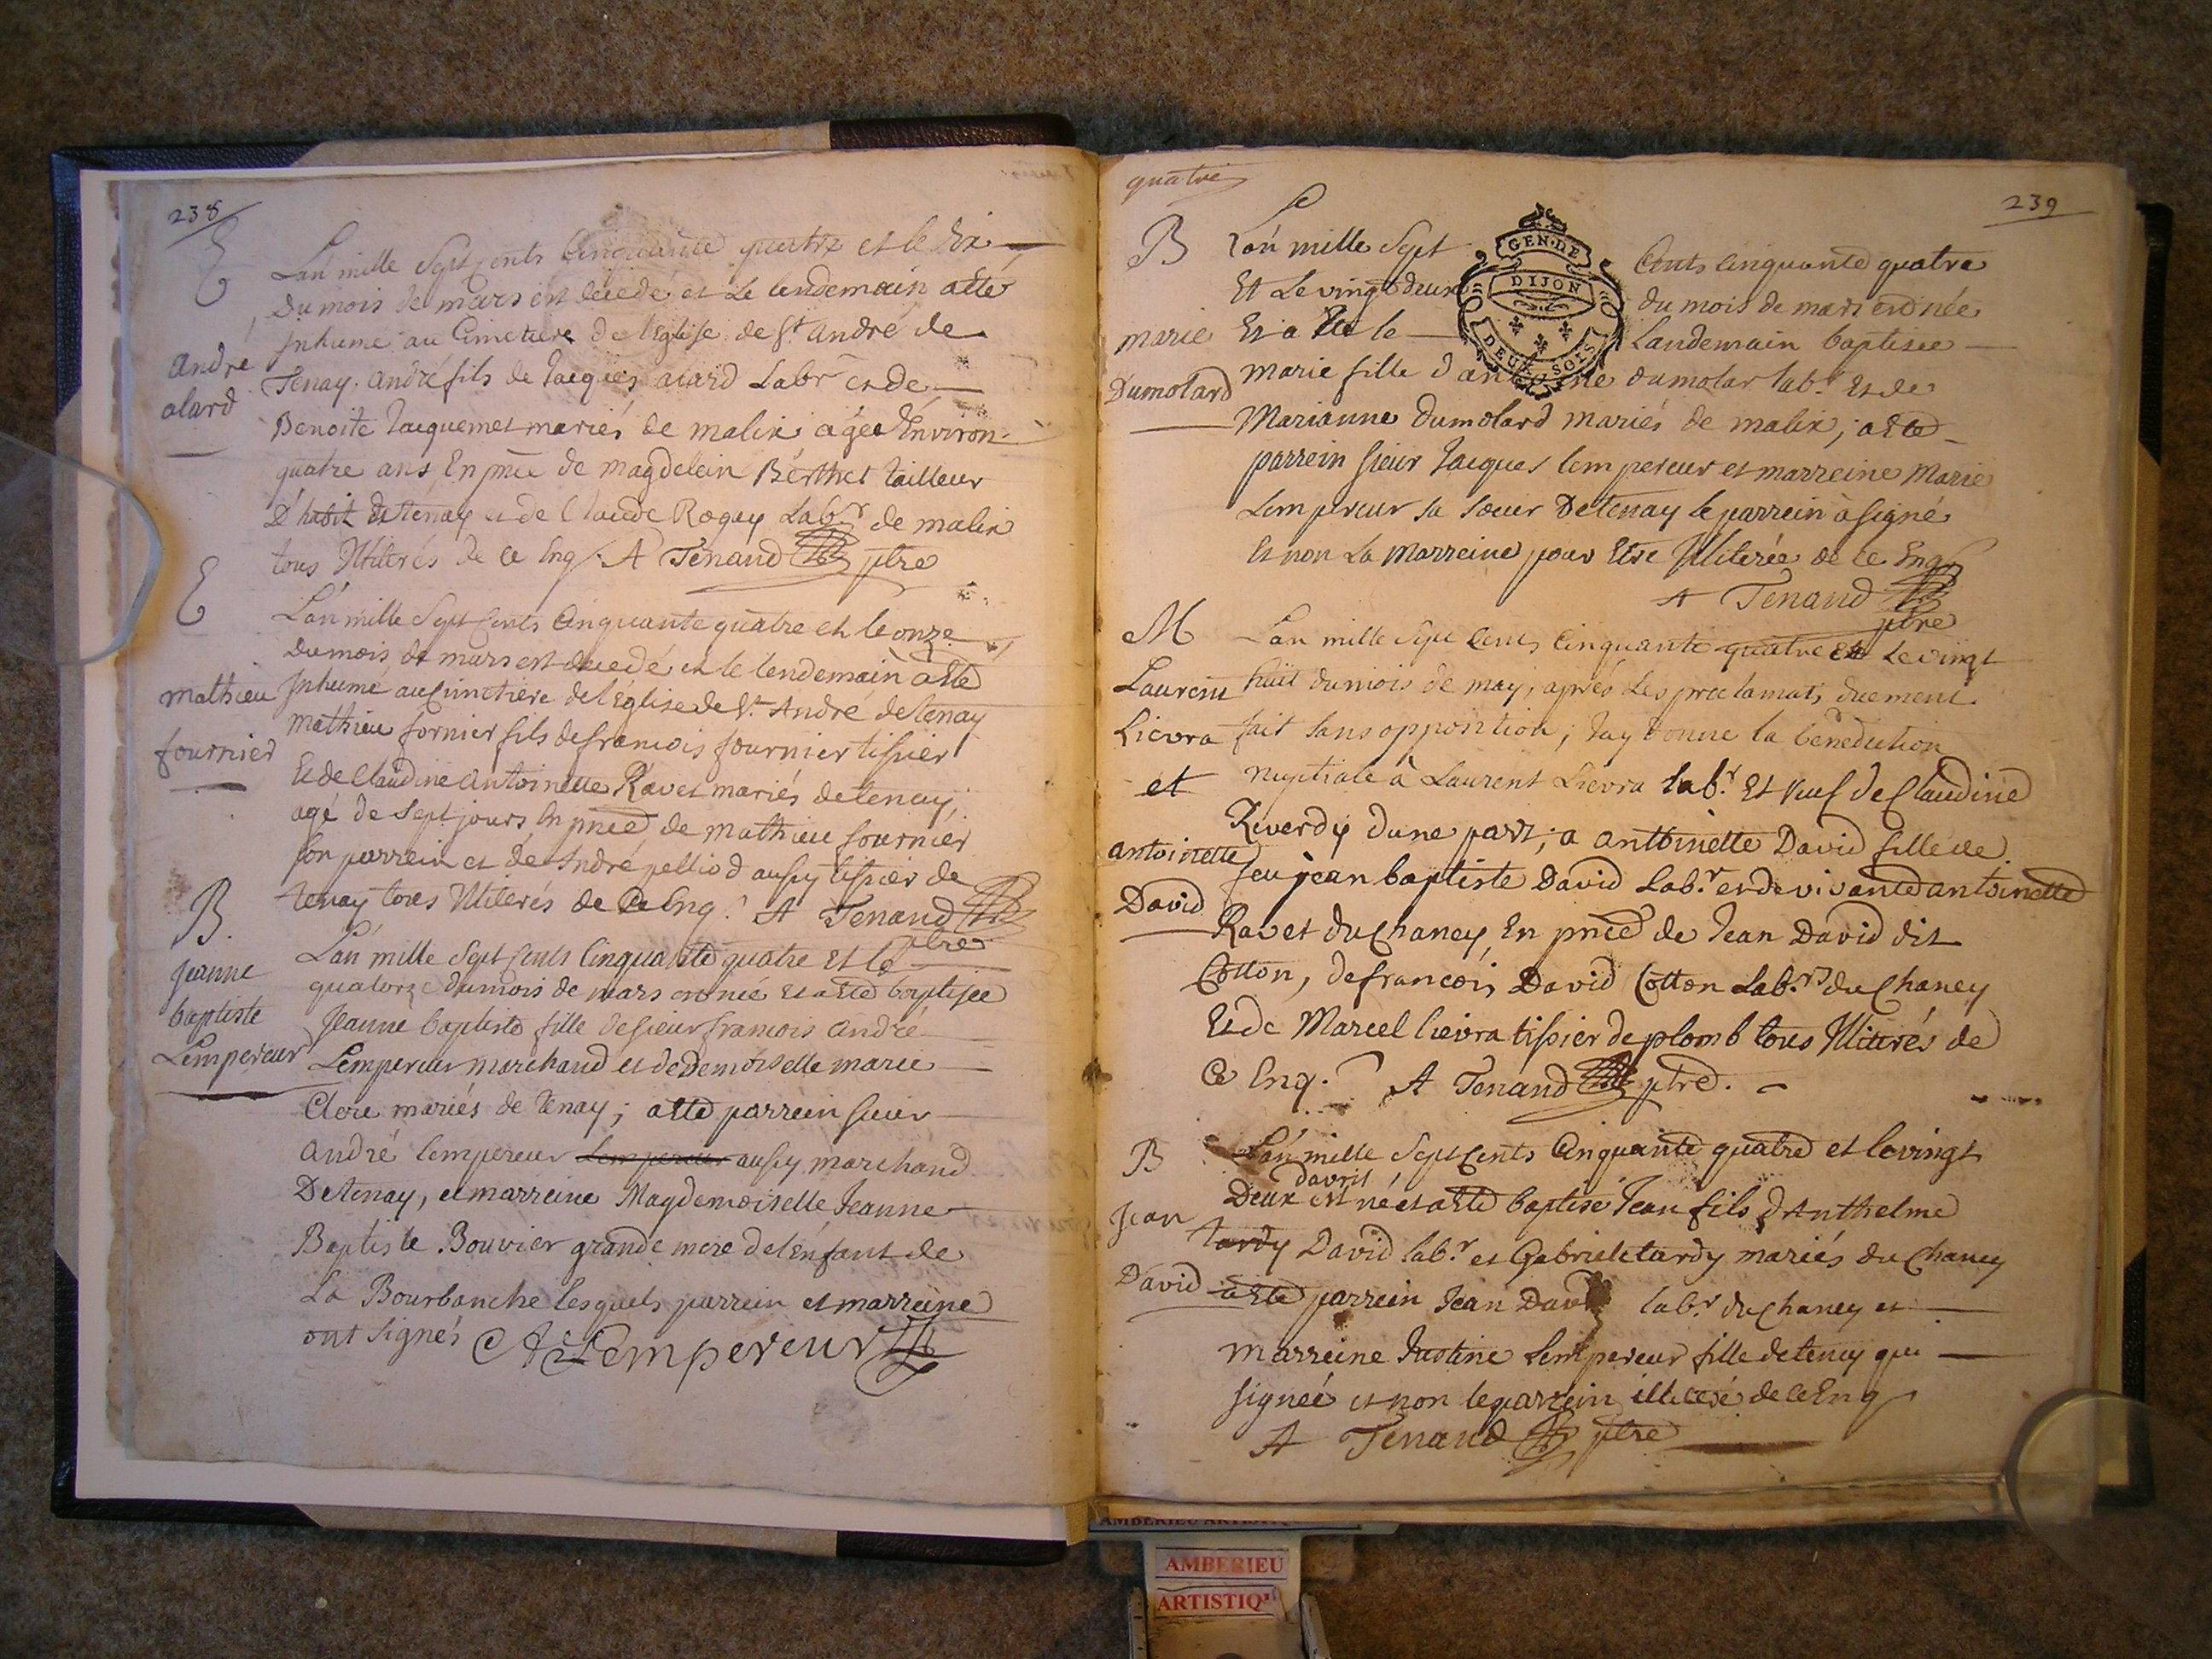 238
E
L'an mille Sept Cents Cinquante quatre et le dix
Du mois de mars est decedé et Le lendemain a été
Inhumé au Cimetiere de l'Eglise de St. André de
andré
Tenay. andré fils de Jacques alard Labr et de
alard
Benoite Jacquemet mariés de malix agée d'Environ
quatre ans, En pnce de magdelein Berthet tailleur
D'habit de tenay et de Claude Rogay Labr de malix
tous Illiterés de ce Enq. A Tenand ptre
E
L'an mille Sept Cents Cinquante quatre et le onze
Du mois de mars est decedé et le lendemain a Eté
mathieu
Inhumé au Cimetiere de l'Eglise de St. André de tenay
Mathieu fornier fils de francois fournier tissier
fournier
Et de Claudine Antoinette Ravet mariés de tenay,
agé de Sept jours En pnce de mathieu fournier
Son parrein et de André pelliod aussy tissier de
tenay tous Illiterés de Ce Enq. A Tenand
ptre
B.
L'an mille Sept Cents Cinquante quatre Et le
Jeanne
quatorze du mois de mars est née et a Eté baptisée
baptiste
Jeanne baptiste fille de sieur francois André
Lempereur
Lempereur marchand et de Demoiselle marie
Clere mariés de tenay; a Eté parrein sieur
André lempereur Lempereur aussy marchand
De tenay, et marreine Magdemoiselle Jeanne
Baptiste Bouvier grande mere de l'Enfant de
La Bourbanche lesquels parrein et marreine
ont signés A Lempereur
quatre
239
B
L'an mille Sept Cents Cinquante quatre
Et Le vingt deux du mois de mars est née
marie
Et a Eté le Landemain baptisée
Dumolard
Marie fille d'antoine dumolar labr. Et de
Marianne Dumolard mariés de malix; a Eté
parrein sieur Jacques lempereur et marreine Marie
Lempereur sa soeur De tenay le parrein à signé
Et non La Marreine pour Etre Illiterée de ce Enq
A Tenand
ptre
GEN. DE
DIJON
DEUX SOLS
M
L'an mille Sept Cents Cinquante quatre Et Le vingt
Laurent
huit du mois de may, aprés Les proclamat. duement
Lievra
fait sans opposition; J'ay donne la benediction
et
nuptiale à Laurent Lievra labr. Et veuf de Claudine
Reverdy d'une part; a Anthoinette David fille de
antoinette
feu jean baptiste David Labr. et de vivante antoinette
David
Ravet du Chaney, En pnce de Jean David dit
Cotton, de francois David Cotton Labrs. du Chaney
Et de Marcel lievra tissier de plomb tous Illiterés de
Ce Enq. A Tenand ptre.
B
L'an mille Sept Cents Cinquante quatre et le vingt
davril
Deux est né et a Eté baptisé Jean fils d'Anthelme
Jean
tardy David labr. et Gabriele tardy mariés du Chaney
David
a Eté parrein Jean David labr. du Chaney et
marreine Justine Lempereur fille de tenay qui
signée et non le parrein illiteré de ce Enq
A Tenand ptre
AMBERIEU
ARTISTIQ